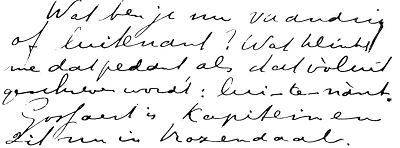 Wat ben je nu vaandrig
of luitenant? Wat klinkt
me dat pedant als dat voluit
geschreven wordt: lui-te-nànt.
Gossaert is Kapitein en
zit nu in Rozendaal.